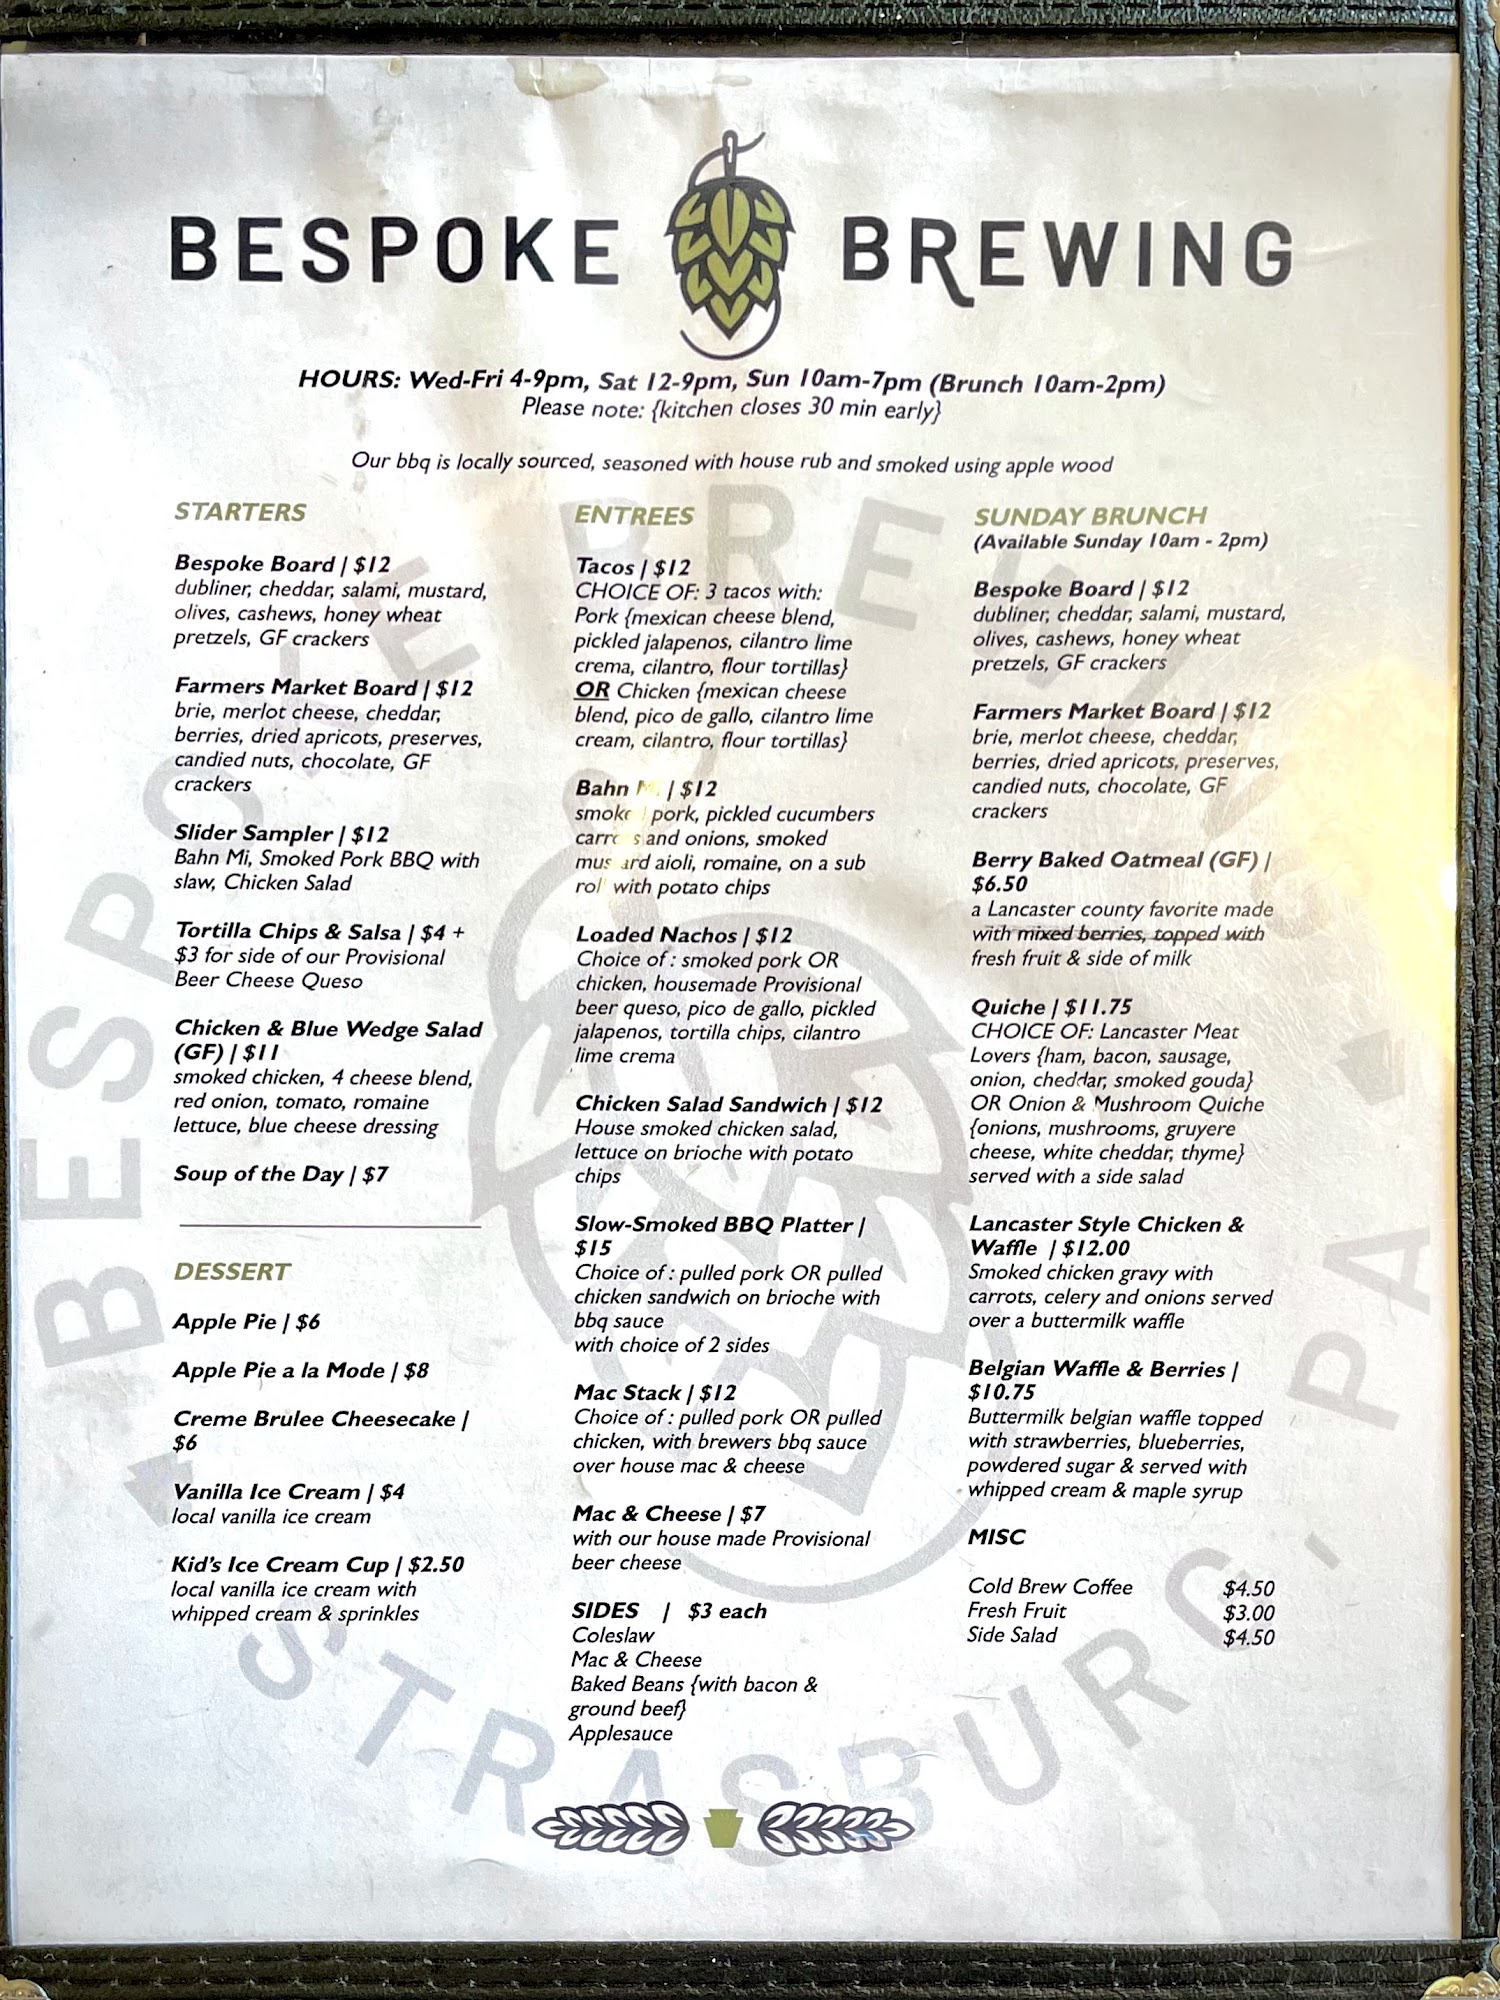 BESPOKE BREWING
HOURS: Wed-Fri 4-9pm, Sat 12-9pm, Sun 10am-7pm (Brunch 10am-2pm)
Please note: {kitchen closes 30 min early}
Our bbq is locally sourced, seasoned with house rub and smoked using apple wood
STARTERS
Bespoke Board | $12
dubliner, cheddar, salami, mustard,
olives, cashews, honey wheat
pretzels, GF crackers
Farmers Market Board | $12
brie, merlot cheese, cheddar,
berries, dried apricots, preserves,
candied nuts, chocolate, GF
crackers
Slider Sampler | $12
Bahn Mi, Smoked Pork BBQ with
slaw, Chicken Salad
Tortilla Chips & Salsa | $4 +
$3 for side of our Provisional
Beer Cheese Queso
Chicken & Blue Wedge Salad
(GF) | $11
smoked chicken, 4 cheese blend,
red onion, tomato, romaine
lettuce, blue cheese dressing
Soup of the Day | $7
DESSERT
Apple Pie | $6
Apple Pie a la Mode | $8
Creme Brulee Cheesecake |
$6
Vanilla Ice Cream | $4
local vanilla ice cream
Kid's Ice Cream Cup | $2.50
local vanilla ice cream with
whipped cream & sprinkles
ENTREES
Tacos | $12
CHOICE OF: 3 tacos with:
Pork {mexican cheese blend,
pickled jalapenos, cilantro lime
crema, cilantro, flour tortillas}
OR Chicken {mexican cheese
blend, pico de gallo, cilantro lime
cream, cilantro, flour tortillas}
Bahn | $12
smoked pork, pickled cucumbers
carrots and onions, smoked
mustard aioli, romaine, on a sub
roll with potato chips
Loaded Nachos | $12
Choice of: smoked pork OR
chicken, housemade Provisional
beer queso, pico de gallo, pickled
jalapenos, tortilla chips, cilantro
lime crema
Chicken Salad Sandwich | $12
House smoked chicken salad,
lettuce on brioche with potato
chips
Slow-Smoked BBQ Platter |
$15
Choice of: pulled pork OR pulled
chicken sandwich on brioche with
bbq sauce
with choice of 2 sides
Mac Stack | $12
Choice of: pulled pork OR pulled
chicken, with brewers bbq sauce
over house mac & cheese
Mac & Cheese | $7
with our house made Provisional
beer cheese
SIDES | $3 each
Coleslaw
Mac & Cheese
Baked Beans {with bacon &
ground beef}
Applesauce
SUNDAY BRUNCH
(Available Sunday 10am - 2pm)
Bespoke Board | $12
dubliner, cheddar, salami, mustard,
olives, cashews, honey wheat
pretzels, GF crackers
Farmers Market Board | $12
brie, merlot cheese, cheddar,
berries, dried apricots, preserves,
candied nuts, chocolate, GF
crackers
Berry Baked Oatmeal (GF) |
$6.50
a Lancaster county favorite made
with mixed berries, topped with
fresh fruit & side of milk
Quiche | $11.75
CHOICE OF: Lancaster Meat
Lovers {ham, bacon, sausage,
onion, cheddar, smoked gouda}
OR Onion & Mushroom Quiche
{onions, mushrooms, gruyere
cheese, white cheddar, thyme}
served with a side salad
Lancaster Style Chicken &
Waffle | $12.00
Smoked chicken gravy with
carrots, celery and onions served
over a buttermilk waffle
Belgian Waffle & Berries |
$10.75
Buttermilk belgian waffle topped
with strawberries, blueberries,
powdered sugar & served with
whipped cream & maple syrup
MISC
Cold Brew Coffee $4.50
Fresh Fruit $3.00
Side Salad $4.50
BESPOKE BREWING
STRASBURG, PA